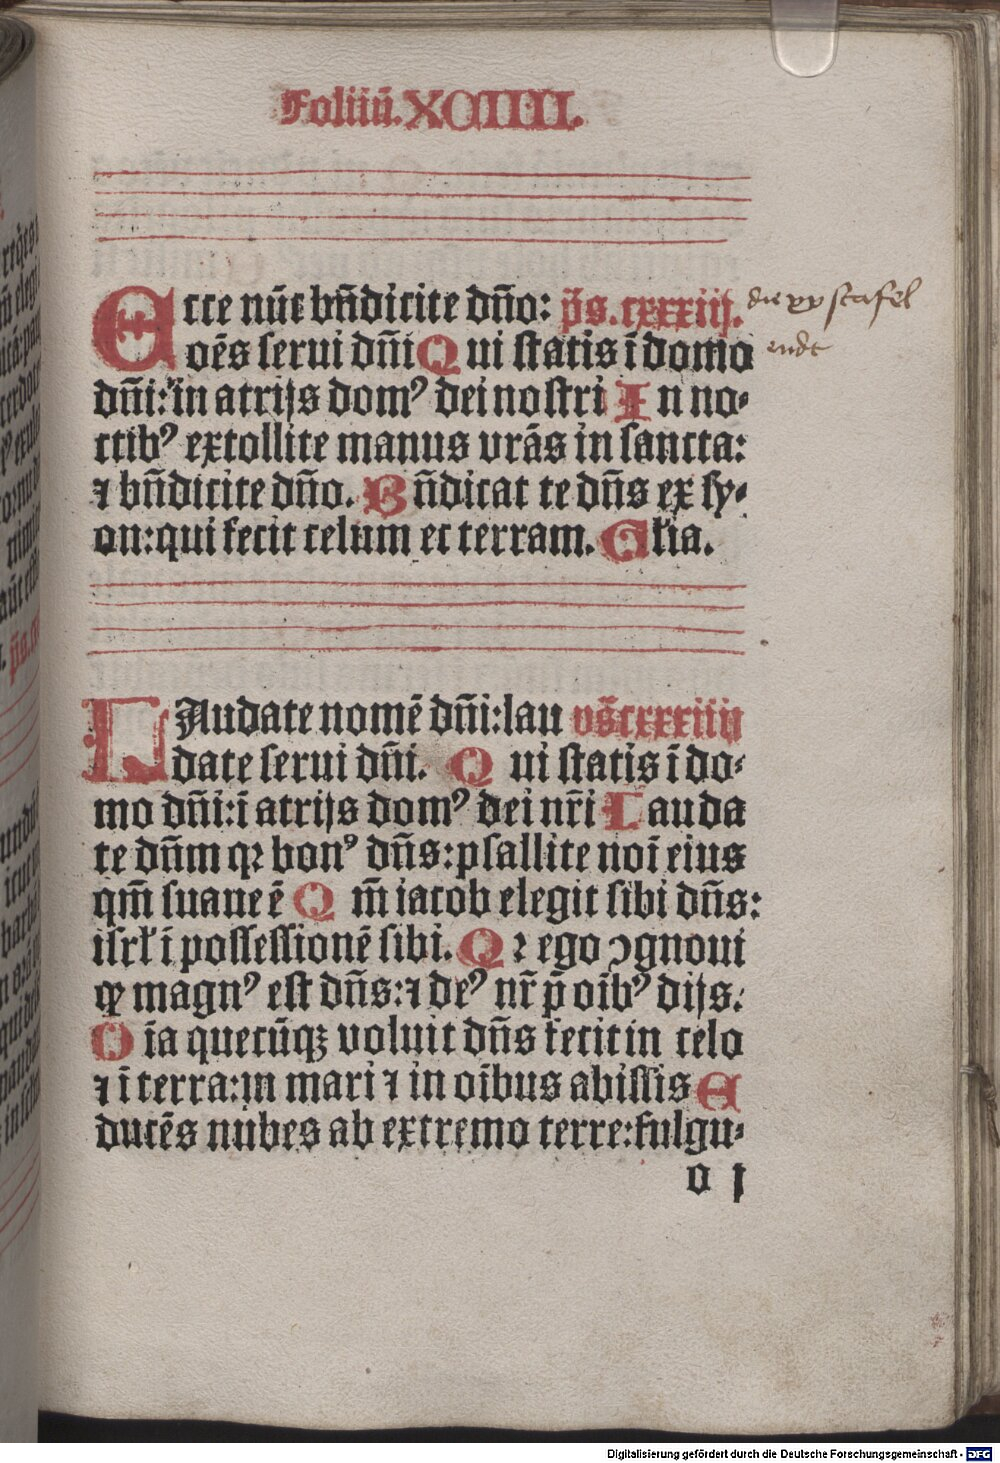 Foliū. XCIIII.
Ecce nūc bn̄dicite dn̄o: p̄s. cxxxiij.
oēs serui dn̄i Qui statis ī domo
dn̄i: in atrijs domꝰ dei nostri In no-
ctibꝰ extollite manus vrās in sancta:
⁊ bn̄dicite dn̄o. Bn̄dicat te dn̄s ex sy-
on: qui fecit celum et terram. Gl'ia.
LAudate nomē dn̄i: lau vs̄cxxxiiij
date serui dn̄i. Qui statis ī do-
mo dn̄i: ī atrijs domꝰ dei nr̄i Lauda
te dn̄m qꝛ bonꝰ dn̄s: psallite noī eius
qm̄ suaue ē Qm̄ iacob elegit sibi dn̄s:
isrl' ī possessionē sibi. Qꝛ ego ↄgnoui
ꝙ magnꝰ est dn̄s: ⁊ deꝰ nr̄ p̄ oībꝰ dijs.
Oīa quecūqꝫ voluit dn̄s fecit in celo
⁊ ī terra: in mari ⁊ in oībus abissis E
ducēs nubes ab extremo terre: fulgu-
o j
Digitalisierung gefördert durch die Deutsche Forschungsgemeinschaft - DFG